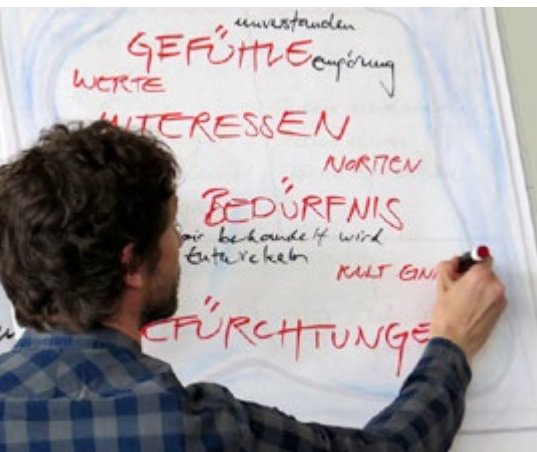 unverstanden
GEFÜHLE empörung
WERTE
INTERESSEN
NORMEN
BEDÜRFNIS
behandelt wird
Entwickeln
KULT